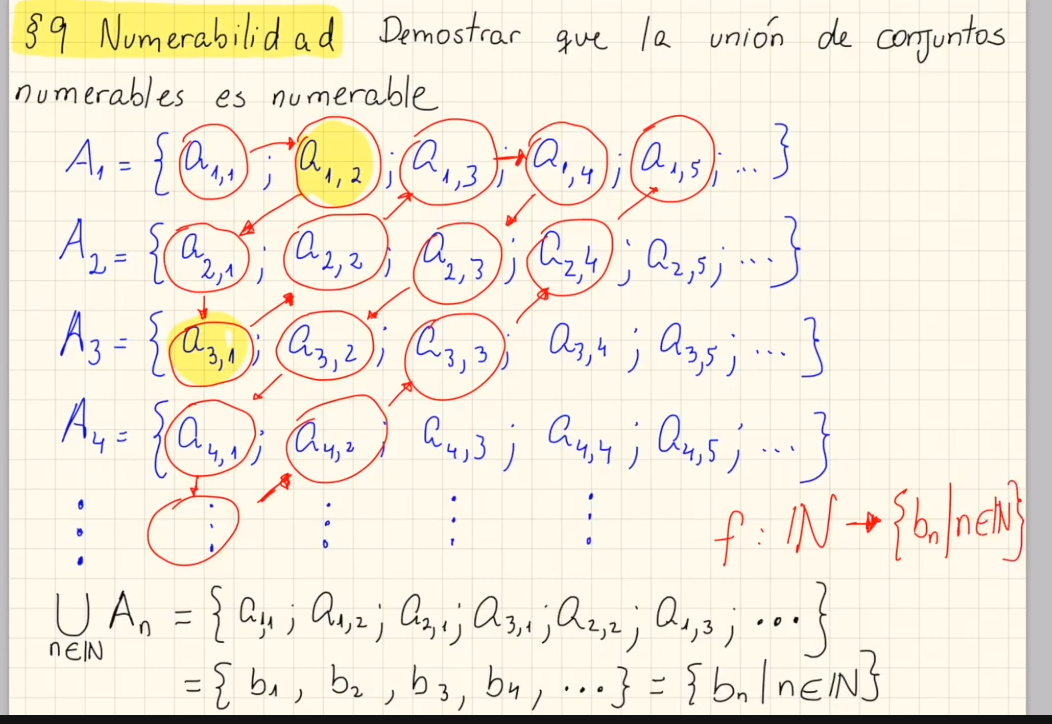 §9 Numerabilidad Demostrar que la unión de conjuntos
numerables es numerable
A₁ = { a₁,₁ ; a₁,₂ ; a₁,₃ ; a₁,₄ ; a₁,₅ ; ... }
A₂ = { a₂,₁ ; a₂,₂ ; a₂,₃ ; a₂,₄ ; a₂,₅ ; ... }
A₃ = { a₃,₁ ; a₃,₂ ; a₃,₃ ; a₃,₄ ; a₃,₅ ; ... }
A₄ = { a₄,₁ ; a₄,₂ ; a₄,₃ ; a₄,₄ ; a₄,₅ ; ... }
⋮ ⋮ ⋮ ⋮ ⋮
f : ℕ → {bₙ | n∈ℕ}
⋃ Aₙ = { a₁,₁ ; a₁,₂ ; a₂,₁ ; a₃,₁ ; a₂,₂ ; a₁,₃ ; ... }
n∈ℕ
= { b₁ , b₂ , b₃ , b₄ , ... } = { bₙ | n∈ℕ }